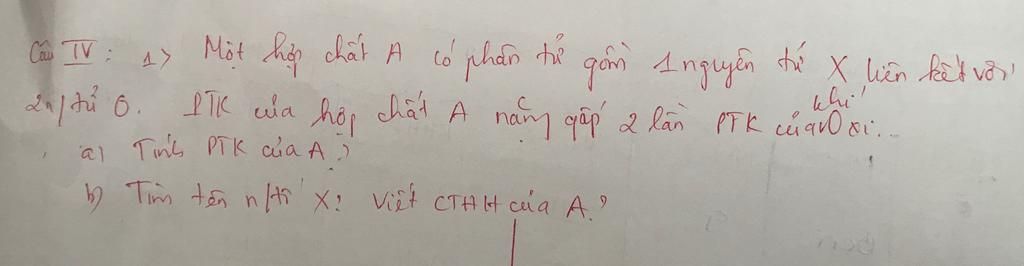 Câu IV: 1> Một hợp chất A có phân tử gồm 1 nguyên tử X liên kết với
2n/tử O. PTK của hợp chất A nặng gấp 2 lần PTK của khí Oxi.
a) Tính PTK của A?
b) Tìm tên n/tố X? Viết CTHH của A?